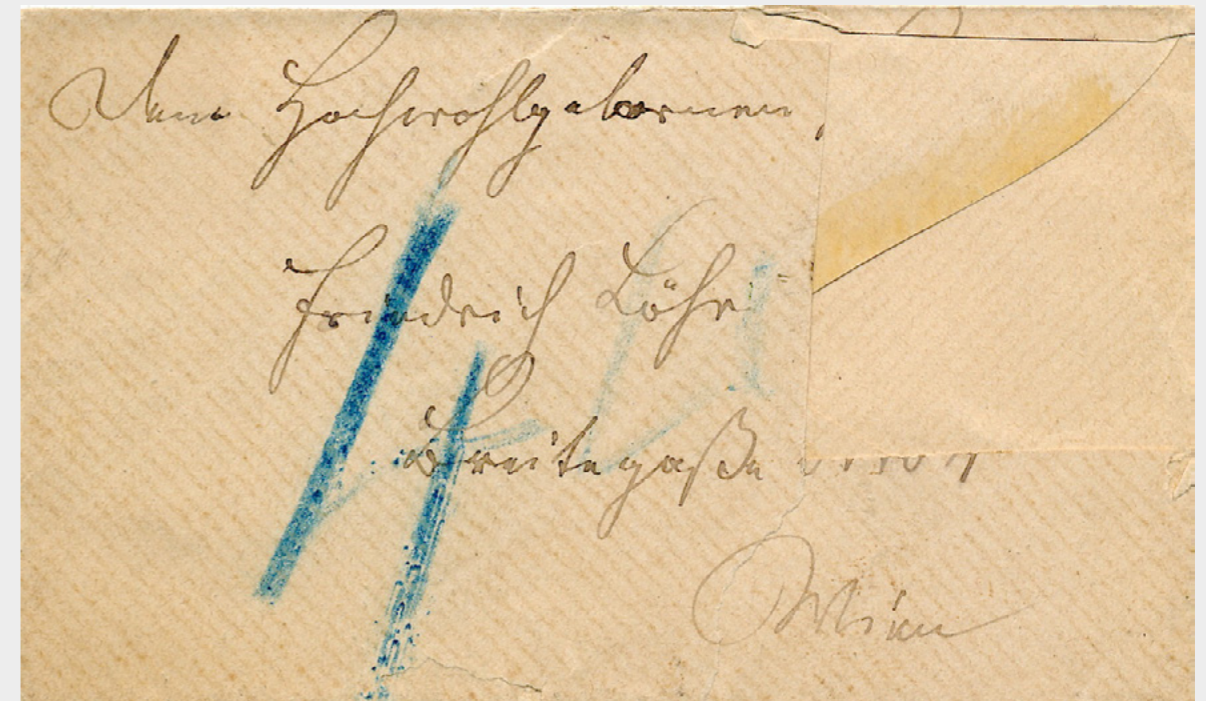 Dem Hochwohlgebornen,
Friedrich Löhr
Breitegaße
Wien